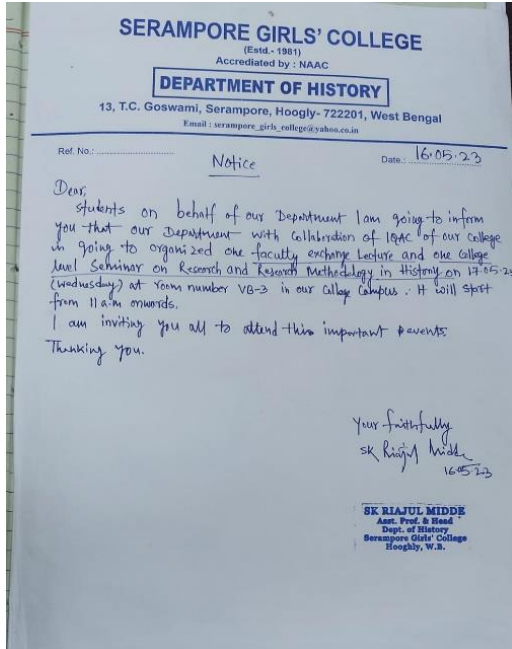 SERAMPORE GIRLS' COLLEGE
(Estd.- 1981)
Accrediated by : NAAC
DEPARTMENT OF HISTORY
13, T.C. Goswami, Serampore, Hoogly- 722201, West Bengal
Email : serampore_girls_college@yahoo.co.in
Ref. No.:
Date.: 16.05.23
Notice
Dear,
students on behalf of our Department I am going to inform
you that our Department with Collaboration of IQAC of our College
is going to organized one faculty exchange Lecture and one College
level Seminar on Research and Research Methodology in History on 17.05.23
(Wednusday) at room number VB-3 in our College Campus. It will start
from 11 a.m onwords.
I am inviting you all to attend this important events.
Thanking you.
Your faithfully
SK Riajul Midde
16.05.23
SK RIAJUL MIDDE
Asst. Prof. & Head
Dept. of History
Serampore Girls' College
Hooghly, W.B.